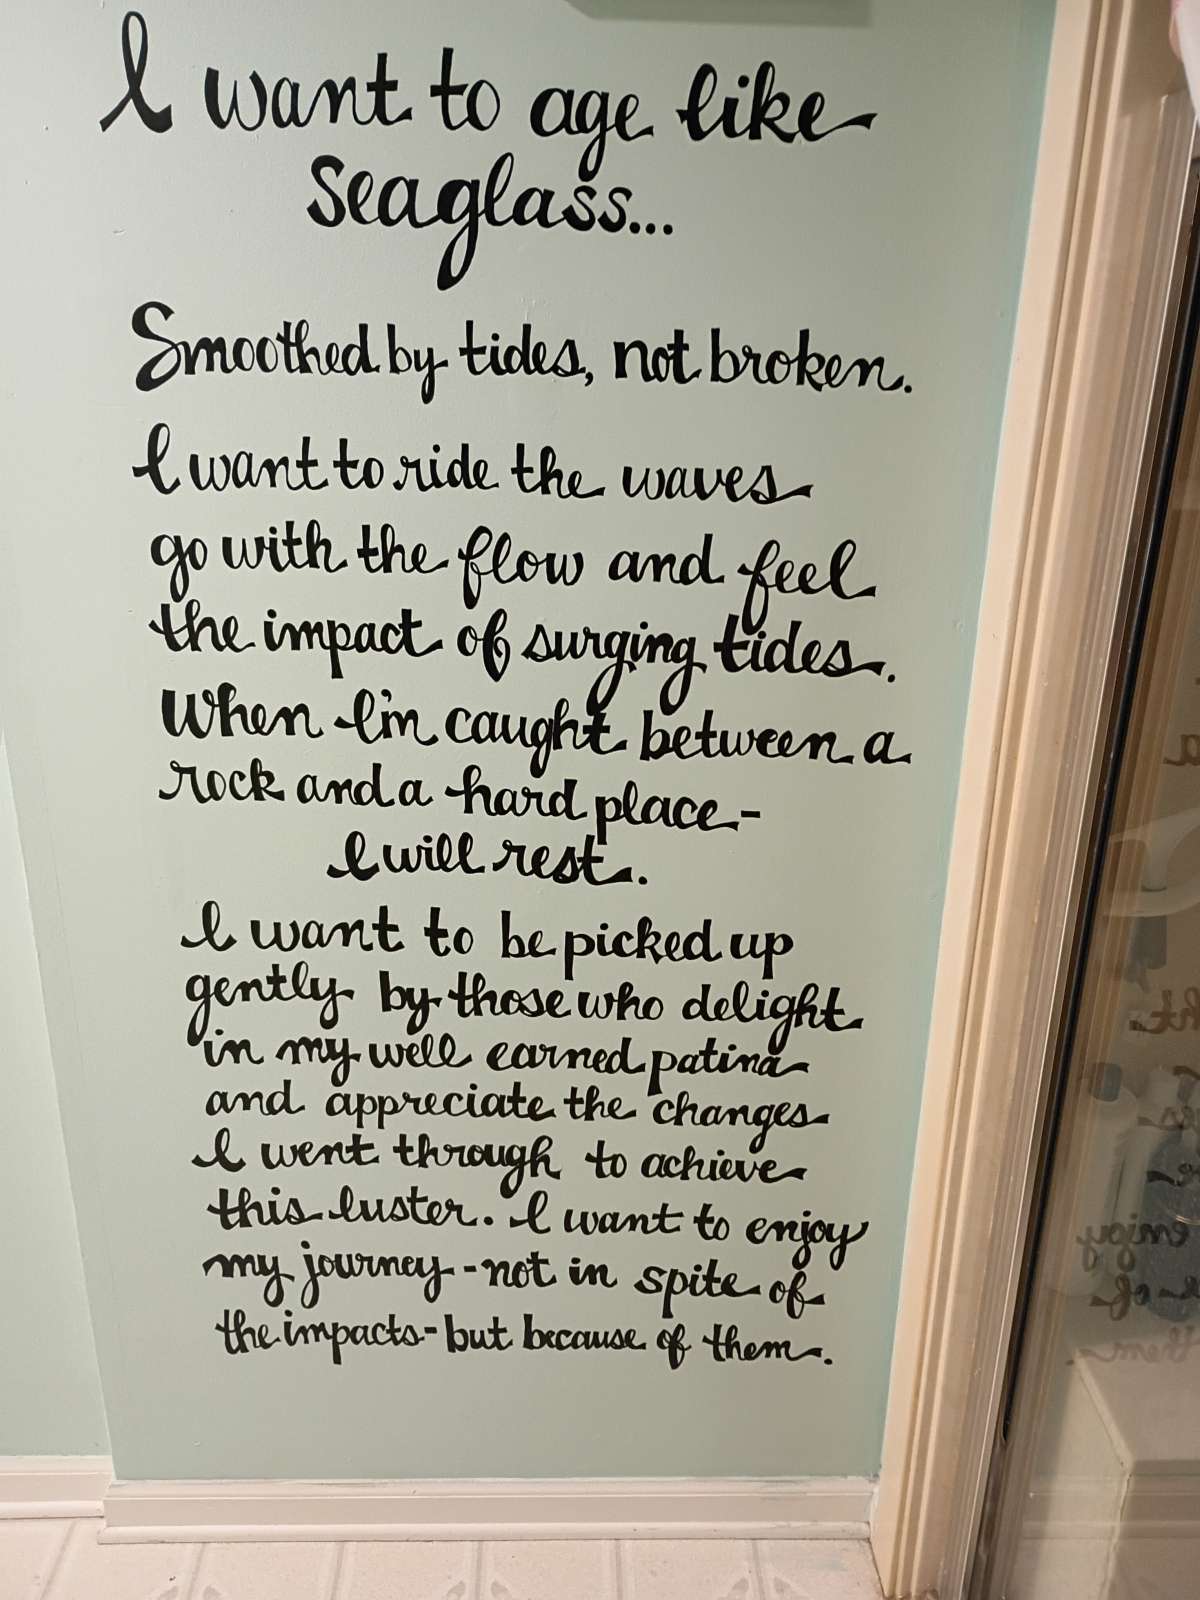 I want to age like
seaglass...
Smoothed by tides, not broken.
I want to ride the waves
go with the flow and feel
the impact of surging tides.
When I'm caught between a
rock and a hard place-
I will rest.
I want to be picked up
gently by those who delight
in my well earned patina
and appreciate the changes
I went through to achieve
this luster. I want to enjoy
my journey - not in spite of
the impacts - but because of them.